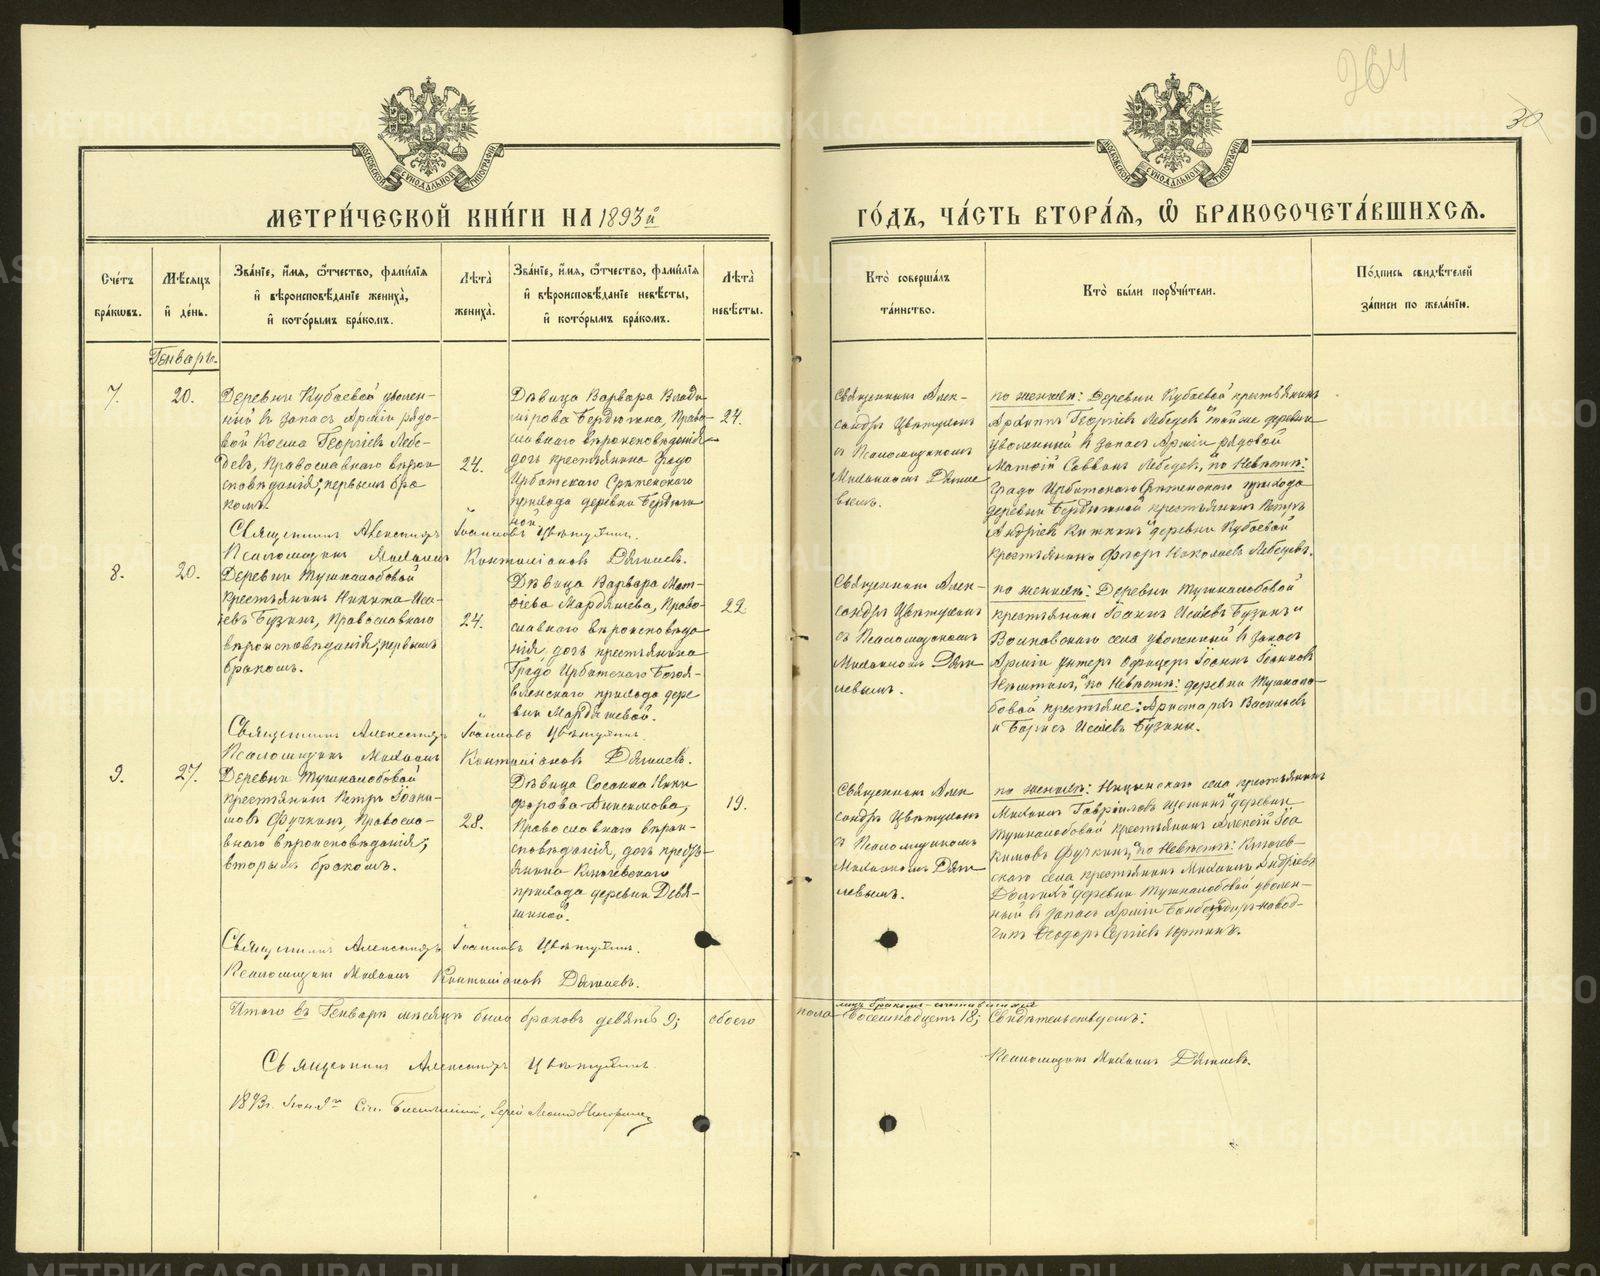 264
30
МЕТРИ́ЧЕСКОЙ КНИ́ГИ НА 1893й
ГО́ДЪ, ЧА́СТЬ ВТОРА́Я, Ѽ БРАКОСОЧЕТА́ВШИХСЯ.
Сче́тъ бра́кѡвъ.
Мѣ́сяцъ и҆ де́нь.
Зва́нїе, и҆́мя, ѻ҆́тчество, фами́лїя
и҆ вѣроисповѣ́данїе жениха̀,
и҆ кото́рымъ бра́комъ.
Лѣ́та жениха̀.
Зва́нїе, и҆́мя, ѻ҆́тчество, фами́лїя
и҆ вѣроисповѣ́данїе невѣ́сты,
и҆ кото́рымъ бра́комъ.
Лѣ́та невѣ́сты.
Кто̀ соверша́лъ
та́инство.
Кто̀ бы́ли поручи́тели.
По́дпись свидѣ́телей
за́писи по жела́нїю.
Генварь.
7.
20.
Деревни Кубаевой уволен-
ный въ запасъ Армiи рядо-
вой Косма Георгiевъ Лебе-
девъ, Православнаго вѣрои-
сповѣданiя, первымъ бра
комъ.
24.
Дѣвица Варвара Влади
мiрова Бердюгина, Право-
славнаго вѣроисповѣданiя
дочь крестьянина Градо
Ирбитскаго Срѣтенскаго
прихода деревни Бердюги
ной.
24.
Священникъ Алек-
сандръ Цвѣтухинъ
съ Псаломщикомъ
Михаиломъ Дягиле
вымъ.
по женихѣ: Деревни Кубаевой крестьянинъ
Архиппъ Георгiевъ Лебедевъ и той же деревни
уволенный въ запасъ Армiи рядовой
Матѳiй Саввинъ Лебедевъ, по Невѣстѣ:
Градо Ирбитскаго Срѣтенскаго прихода
деревни Бердюгиной крестьянинъ Петръ
Андрiевъ и деревни Кубаевой
крестьянинъ Николаевъ Лебедевъ.
Священникъ Александръ Iоанновъ Цвѣтухинъ.
Псаломщикъ Михаилъ Дягилевъ.
8.
20.
Деревни Тушналобовой
крестьянинъ Никита Иса-
iевъ Бузинъ, Православнаго
вѣроисповѣданiя, первымъ
бракомъ.
24.
Дѣвица Варвара Мат-
ѳiева Мардяшева, Право-
славнаго вѣроисповѣда
нiя, дочь крестьянина
Градо Ирбитскаго Богоя-
вленскаго прихода дере
вни Мардяшевой.
22
Священникъ Алек-
сандръ Цвѣтухинъ
съ Псаломщикомъ
Михаиломъ Дяги
левымъ.
по женихѣ: Деревни Тушналобовой
крестьянинъ Iоаннъ Исаiевъ Бузинъ и
Волковскаго села уволенный въ запасъ
Армiи унтеръ Офицеръ Iоаннъ Iоанновъ
по Невѣстѣ: деревни Тушнало-
бовой крестьяне: Аристархъ Васильевъ
и Борисъ Исаiевъ Бузины.
Священникъ Александръ Iоанновъ Цвѣтухинъ.
Псаломщикъ Михаилъ Дягилевъ.
9.
27.
Деревни Тушналобовой
крестьянинъ Петръ Iоанн-
новъ Фучкинъ, Правосла-
внаго вѣроисповѣданiя,
вторымъ бракомъ.
28.
Дѣвица Сосанна Ники
форова
Православнаго вѣрои-
сповѣданiя, дочь кресть-
янина Ключевскаго
прихода деревни Девя-
шиной.
19.
Священникъ Алек
сандръ Цвѣтухинъ
съ Псаломщикомъ
Михаиломъ Дяги
левымъ.
по женихѣ: Ницинскаго села крестьянинъ
Михаилъ Гаврiиловъ деревни
Тушналобовой крестьянинъ Алексiй Iоа
кимовъ Фучкинъ, по Невѣстѣ: Ключев-
скаго села крестьянинъ Михаилъ Андрiевъ
деревни Тушналобовой уволен-
ный въ запасъ Армiи Бомбардиръ-навод-
чикъ Ѳеодоръ Сергiевъ
Священникъ Александръ Iоанновъ Цвѣтухинъ.
Псаломщикъ Михаилъ Дягилевъ.
Итого въ Генварѣ мѣсяцѣ было браковъ девять 9; обоего пола лицъ бракомъ сочетавшихся
Восемнадцать 18; Свидѣтельствуемъ:
Священникъ Александръ Цвѣтухинъ.
Псаломщикъ Михаилъ Дягилевъ.
1893г.